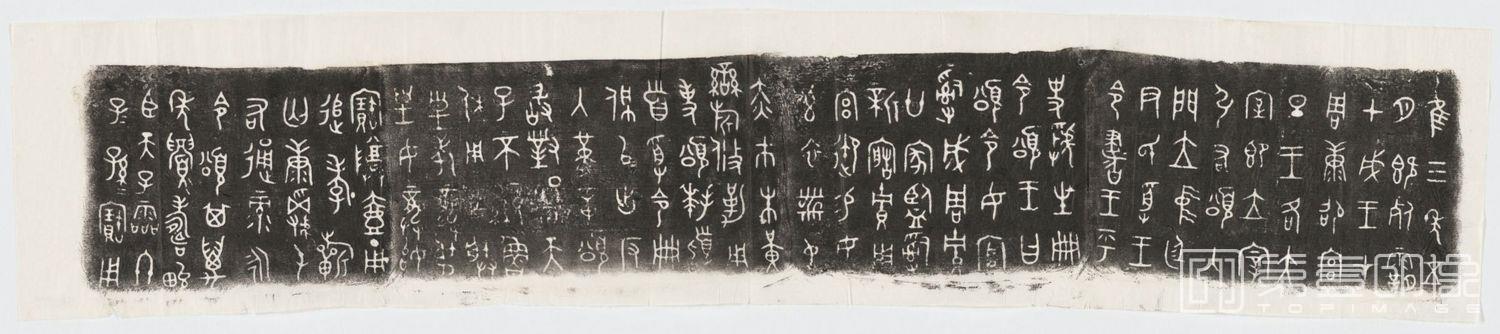 隹三年五
月既死霸
甲戌王才
周康卲宮
旦王各大
室即立宰
弘右頌入
門立中廷
尹氏受王
令書王乎
史虢生冊
令頌王曰
頌令女官
𤔲成周貯
廿家監𤔲
新造貯用
宮御易女
玄衣黹屯
赤巿朱黃
䜌旂攸勒用
事頌拜稽
首受令冊
佩以出反
入堇章頌
敢對揚天
子不顯魯
休用乍朕
皇考龏弔
皇母龏姒
寶尊壺用
追孝祈
匄康𠭯屯
右通彔永
令頌其萬
年眉壽畯
臣天子霝冬
子孫寶用
第壹印象
TOPIMAGE